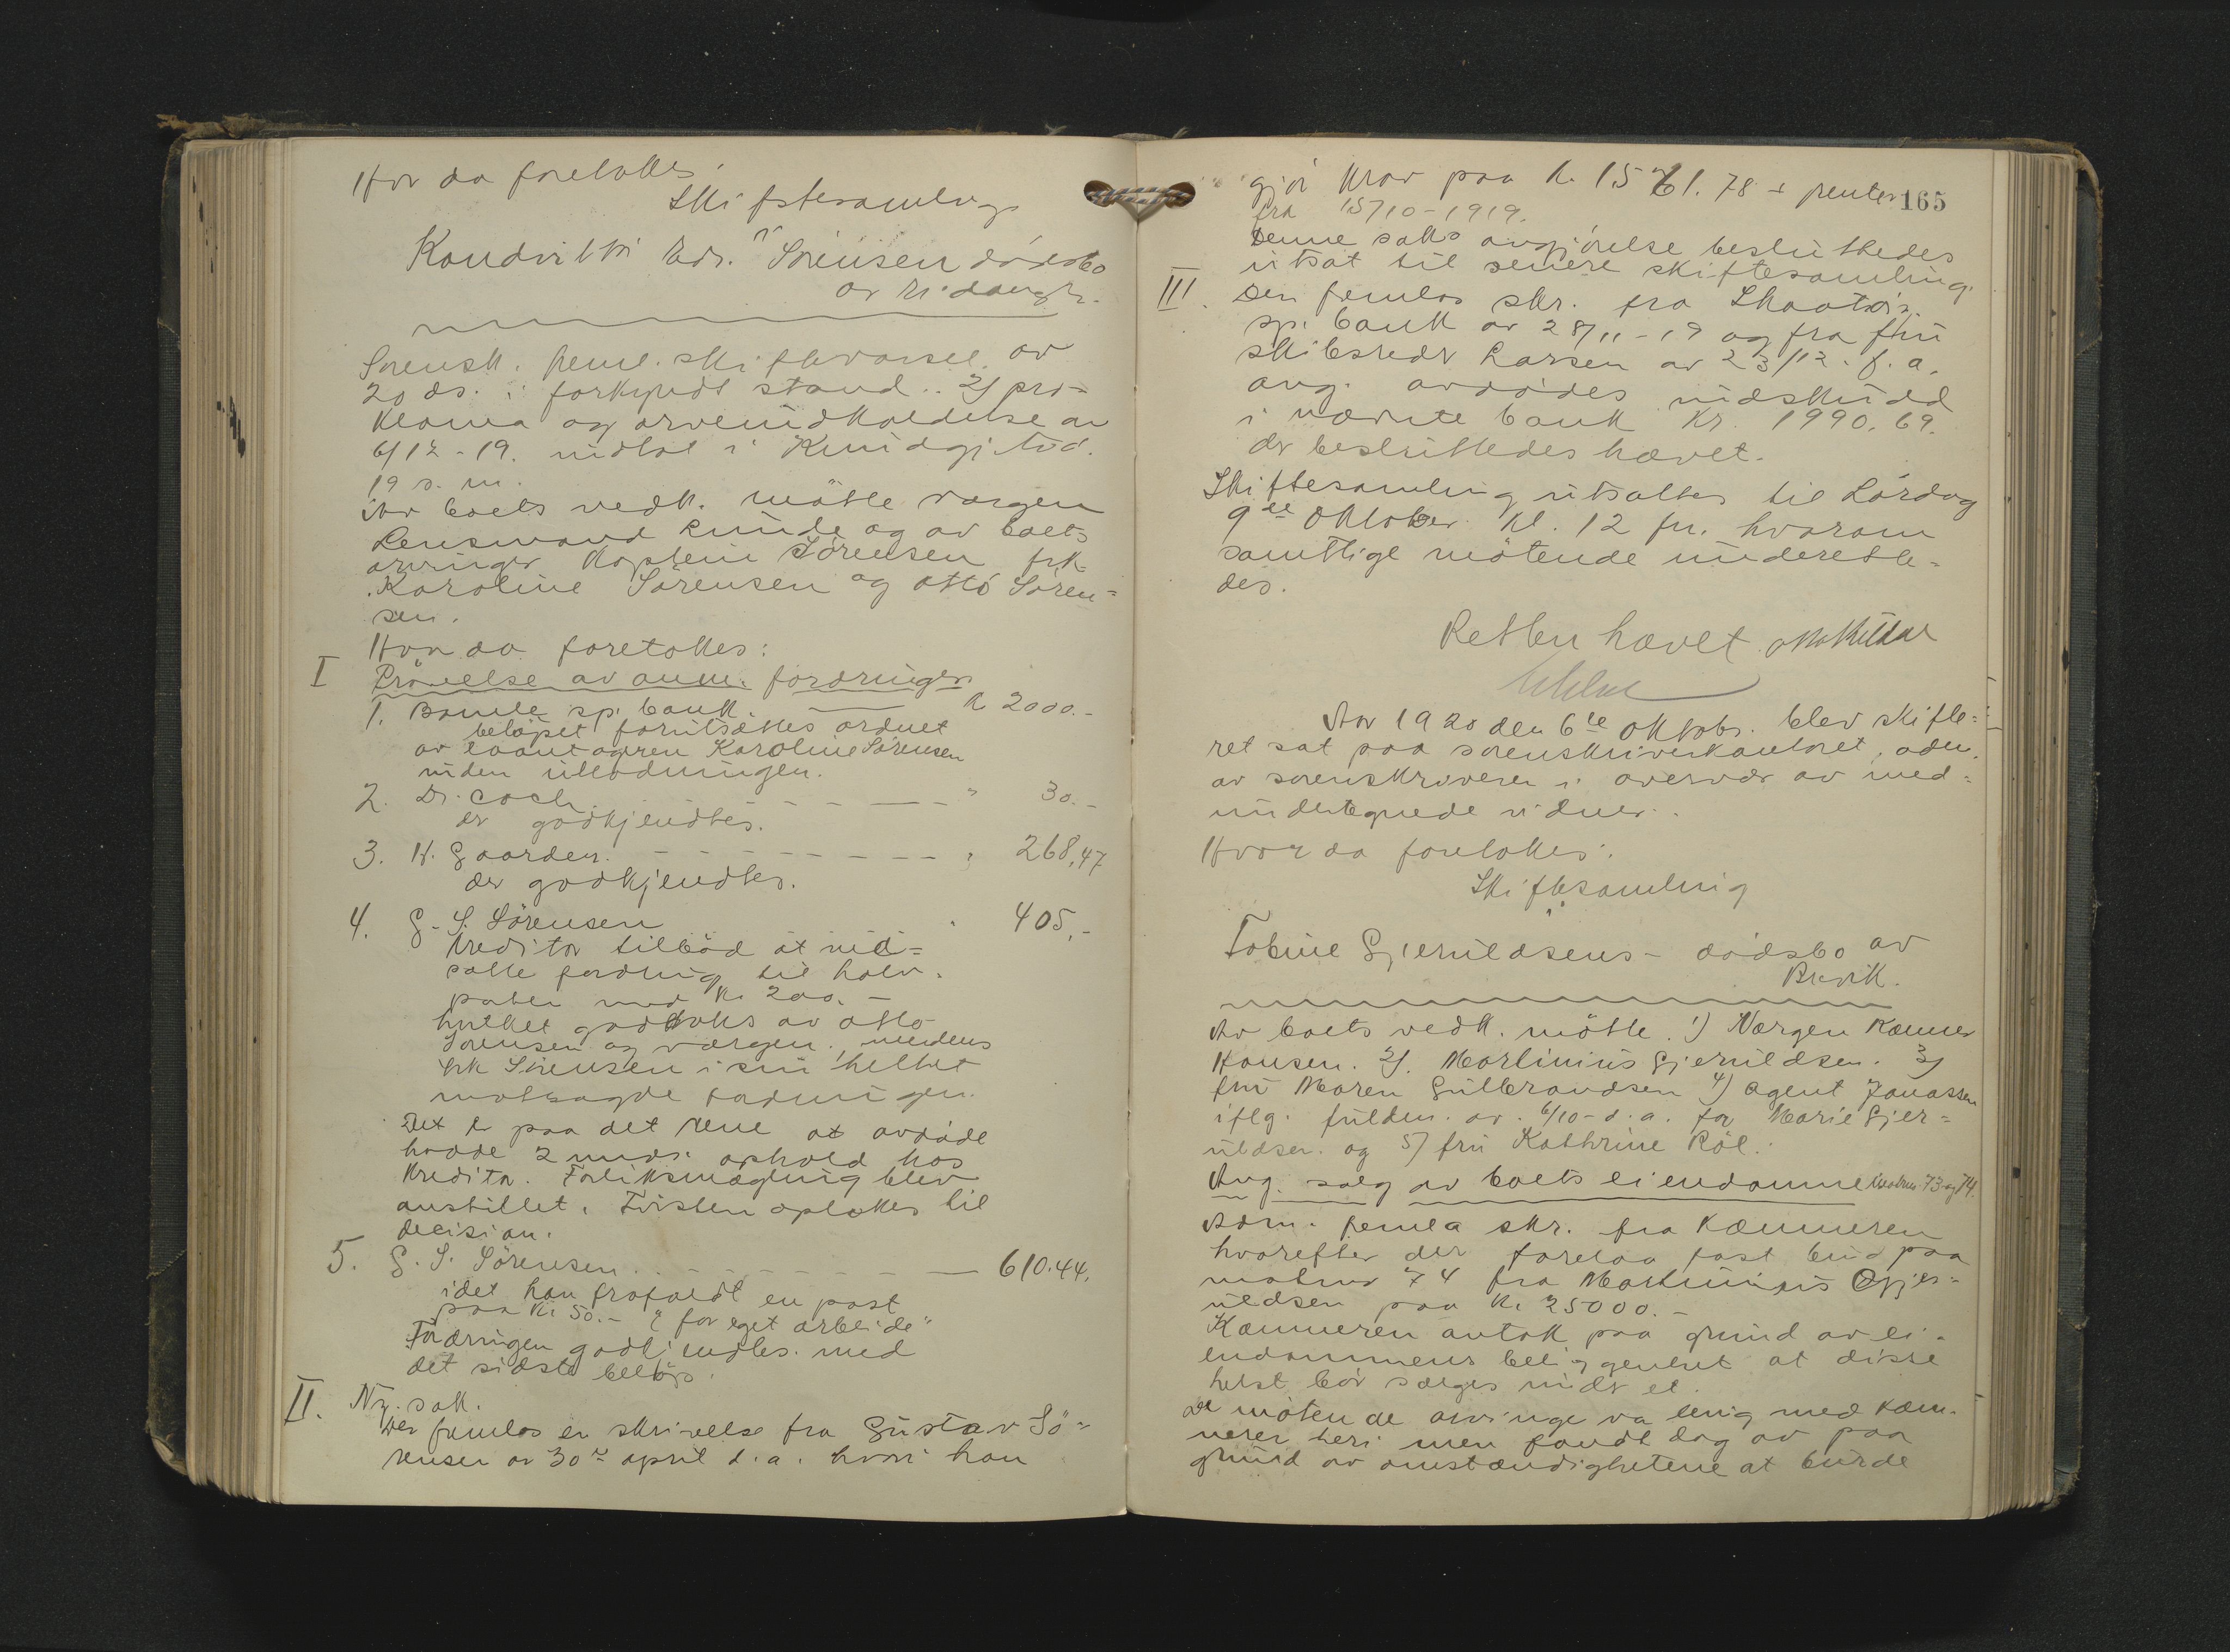 Hvor da foretokes:
Skiftesamling
i
Sörensen dödsbo
av
Sorensk. freml. skiftevarsel av
20 ds. i forkyndt stand. 2) pro-
klama og arveindkaldelse av
6/12 - 19. indtat i Kundgj. tid.
19 s. m.
Av boets vedk. mötte vergen
Lensmand Lunde og av boets
arvinger Kaptein Sörensen frk
Karoline Sörensen og Otto Sören-
sen.
Hvor da foretokes:
I Prövelse av anm. fordringer
1. Bamle sp. bank. K 2000.-
belöpet forutsættes ordnet
av laantageren Karoline Sörensen
uden utlodningen.
2. Dr. Coch. - - - - " 30.-
der godkjendtes.
3. H. Gaarder. - - - - - - - - " 268,47
der godkjendtes.
4. G. S. Sörensen " 405,-
Kreditor tilböd at ned-
sætte fordring til halv-
parten med Kr 200.-
hvilket godtoks av Otto
Sörensen og værgen, mendens
frk Sörensen i sin helhet
motsagde fordringen.
Det er paa det rene at avdöde
hadde 2 mnds. ophold hos
Kreditor. Forliksmægling blev
anstillet. Tvisten optokes til
decision.
5. G. S. Sörensen. - - - - - - 610.44.
idet han frafaldt en post
paa Kr 50.- "for eget arbeide"
Fordringen godkjendtes med
det sidste belöp.
II. Ny. sak.
Der fremlas en skrivelse fra Gustav Sö-
rensen av 30te april d. a. hvori han
165
gjör krav paa K. 1561.78 + renter
fra 15/10-1919.
Denne saks avgjörelse besluttedes
utsat til senere skiftesamling.
III. Der fremlas skr. fra Skaatöi
sp. bank av 28/11-19 og fra fru
skibsreder Larsen av 23/12 - f. a.
ang. avdödes indskudd
i nævnte bank Kr. 1990,69.
der besluttedes hævet.
Skiftesamling utsattes til Lördag
9de Oktober Kl. 12 fm. hvorom
samtlige mötende underette-
des.
Retten hævet
Aar 1920 den 6te Oktobr. blev skifte-
ret sat paa sorenskriverkontoret, adm.
av sorenskriveren i overvær av med-
undertegnede vidner.
Hvor da foretokes:
Skiftesamling
i
Tobine Gjeruldsens - dödsbo av
Brevik.
Av boets vedk. mötte 1) Værgen Kæmner
Hansen. 2). Martinius Gjeruldsen. 3)
fru Maren Gulbrandsen 4) agent Jonassen
iflg. fuldm. av 6/10- d. a. for Marie Gjer-
uldsen. og 5) fru Kathrine Röl.
Ang. salg av boets eiendomme matrnr. 73 og 74.
Adm. fremla skr. fra Kæmneren
hvorefter der forelaa fast bud paa
matrnr 74 fra Martinius Gjer-
uldsen paa Kr 25000.-
Kæmneren antok paa grund av ei-
endommens beliggenhet at disse
helst bör sælges under et.
De mötende arvinge va enig med kæm-
neren heri men fandt dog av paa
grund av omstændighetene at burde